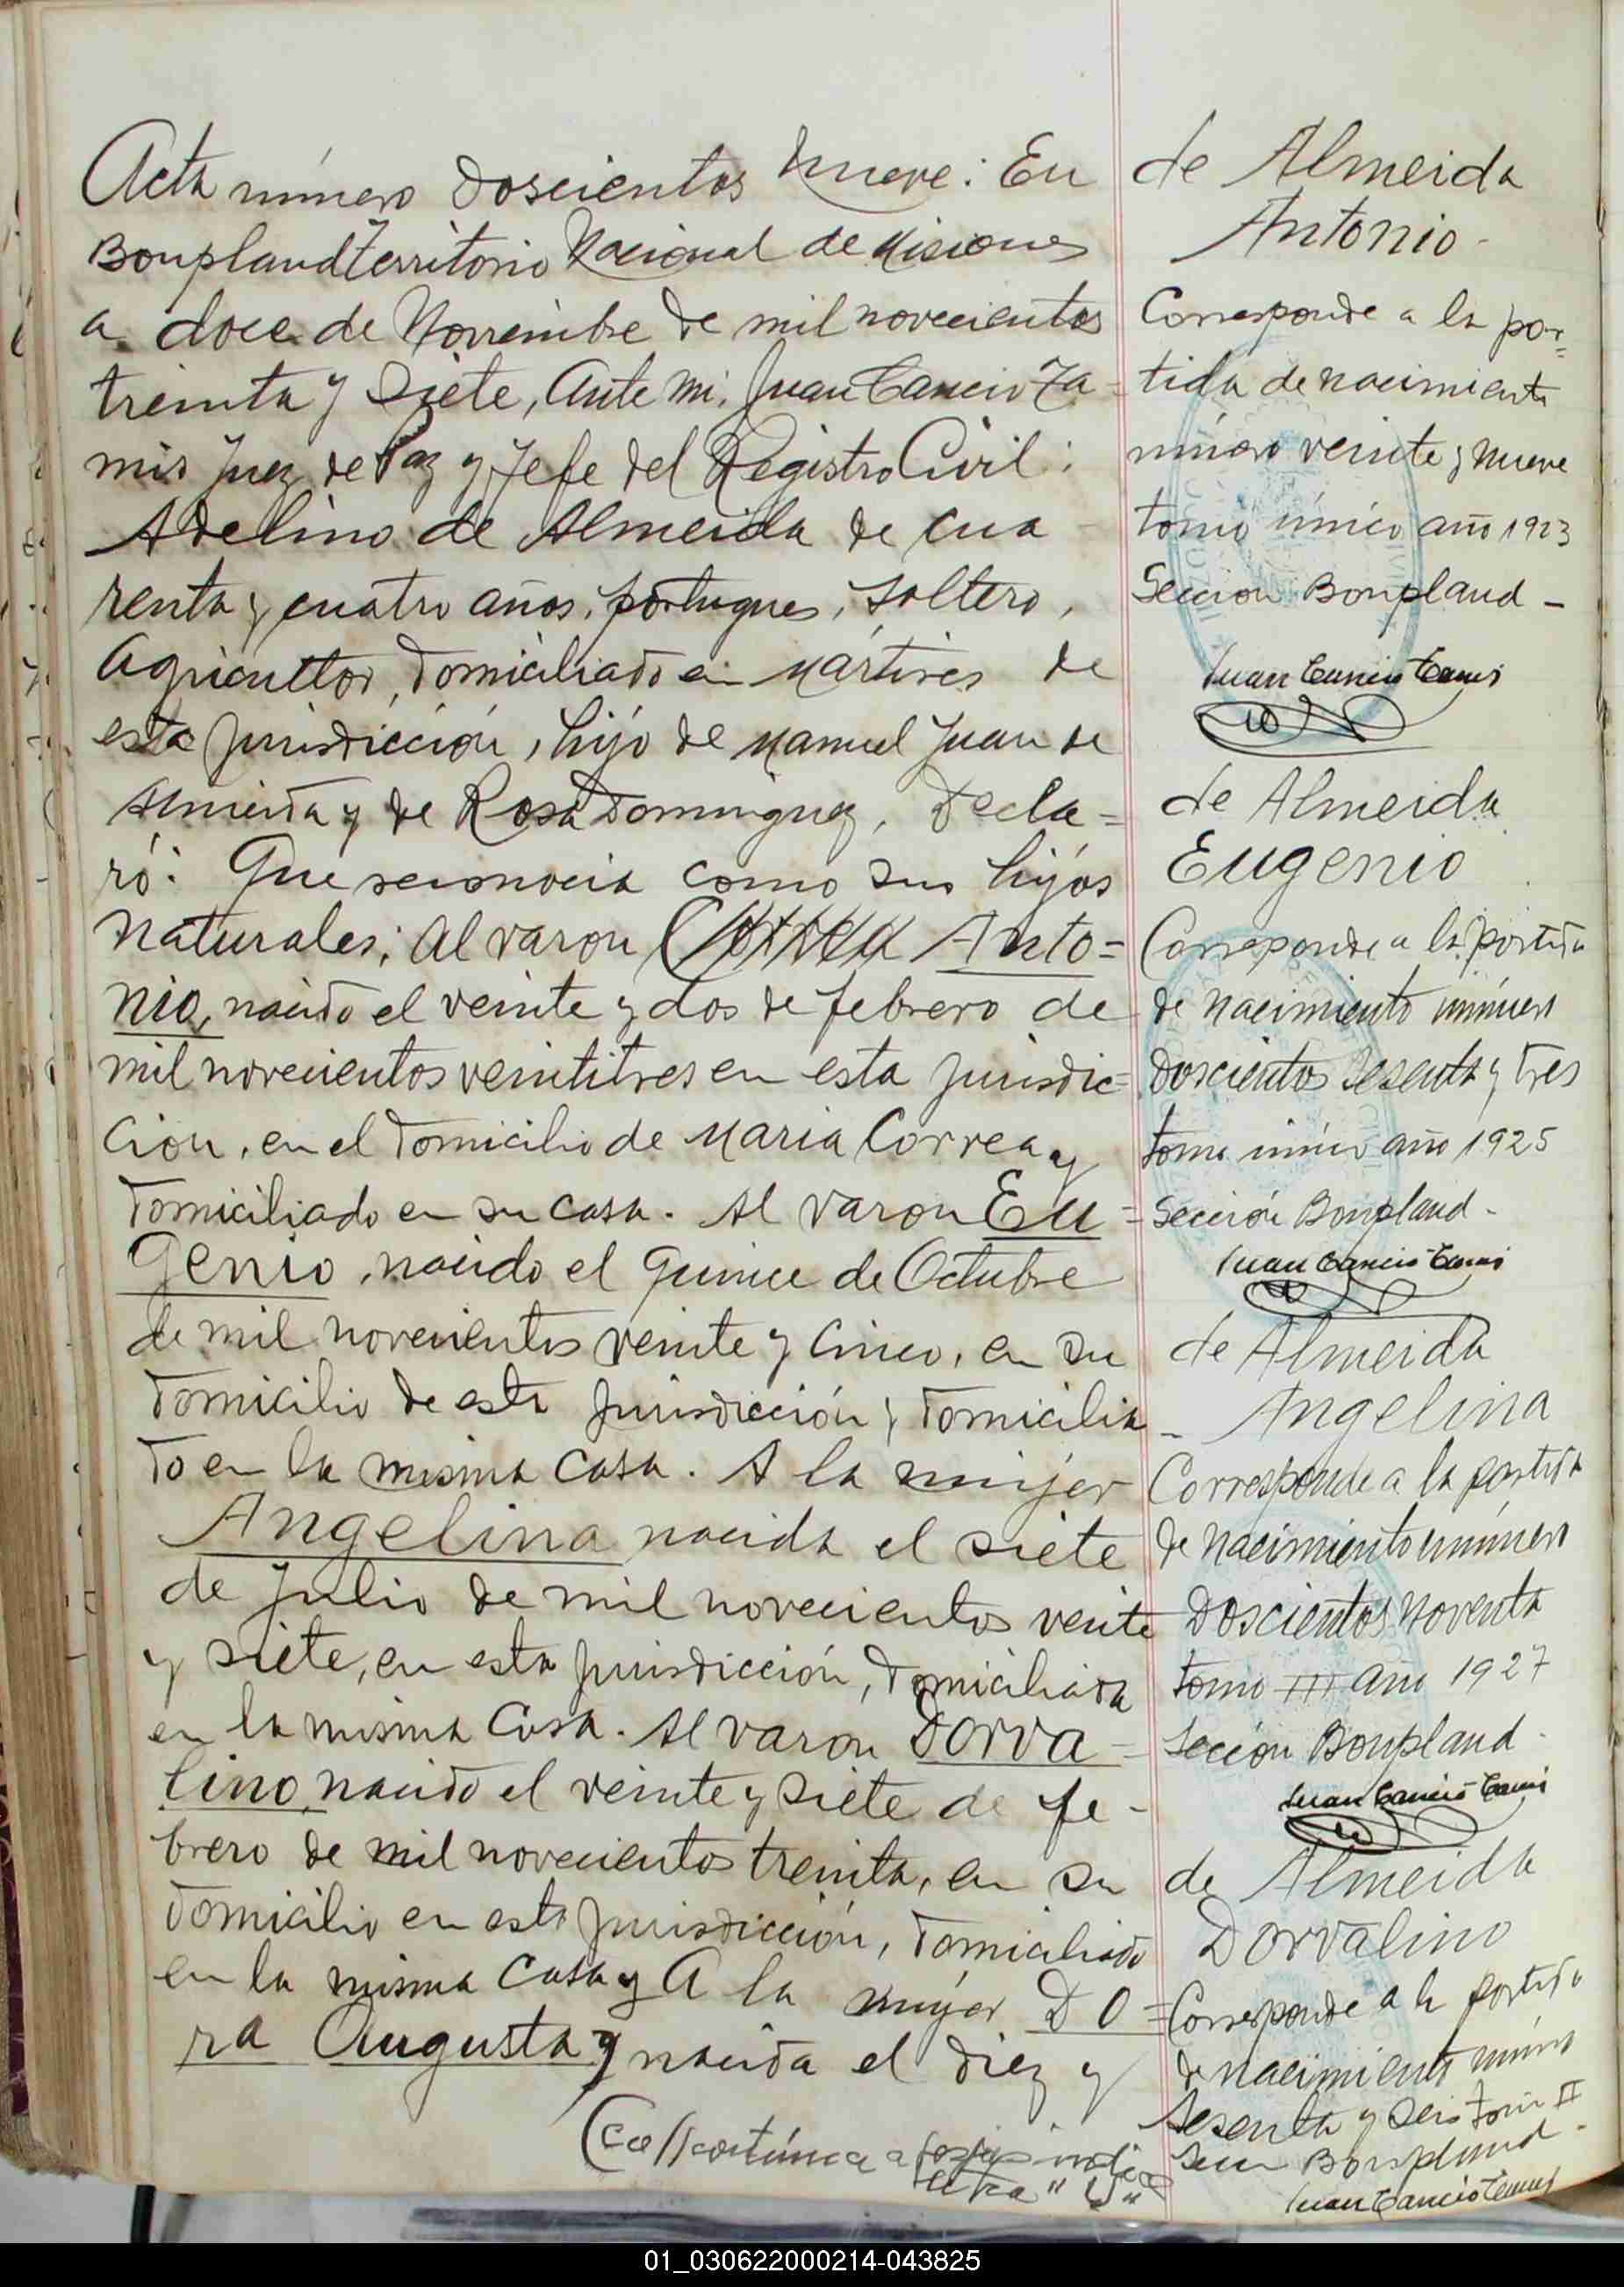 Acta número Doscientos Nueve: En
Bonpland Territorio Nacional de Misiones
a doce de Noviembre de mil novecientos
treinta y Siete, Ante mi, Juan Cancio Ta-
mis Juez de Paz y Jefe del Registro Civil:
Adelino de Almeida de cua
renta y cuatro años, portugues, soltero,
Agricultor, domiciliado en Mártires de
esta jurisdicción, hijo de Manuel Juan de
Almeida y de Rosa Dominguez, Decla=
ró: Que reconocia como sus hijos
naturales; Al varon Correa Anto=
nio, nacido el veinte y dos de febrero de
mil novecientos veintitres en esta jurisdic=
ción, en el domicilio de Maria Correa y
domiciliado en su casa. Al varon Eu=
Genio, nacido el quince de Octubre
de mil novecientos veinte y cinco, en su
domicilio de esta jurisdicción y domicilia
do en la misma casa. A la mujer
Angelina nacida el siete
de Julio de mil novecientos veinte
y siete, en esta jurisdicción, domiciliada
en la misma casa. Al varon Dorva=
lino, nacido el veinte y siete de fe-
brero de mil novecientos treinta, en su
domicilio en esta jurisdicción, domiciliado
en la misma casa y A la mujer DO=
ra Augusta y nacida el diez y
(Ca// continua a fojas
letra "U"
de Almeida
Antonio-
Corresponde a la par=
tida de nacimiento
número veinte y nueve
tomo único año 1923
Sección Bonpland-
Juan Cancio Tamis
de Almeida
Eugenio
Corresponde a la partida
de nacimiento número
Doscientos Sesenta y tres
tomo único año 1925
Sección Bonpland-
Juan Cancio Tamis
de Almeida
- Angelina
Corresponde a la partida
de nacimiento número
Doscientos noventa
tomo III año 1927
Sección Bonpland-
Juan Cancio Tamis
de Almeida
Dorvalino
Corresponde a la partida
de nacimiento número
Sesenta y Seis Tomo II
Bonpland-
Juan Cancio Tamis
01_030622000214-043825